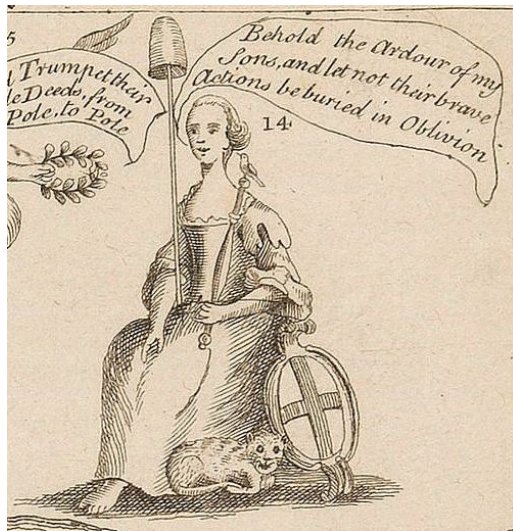 5
Trumpet their
Deeds, from
Pole, to Pole
Behold the Ardour of my
Sons, and let not their brave
Actions be buried in Oblivion
14